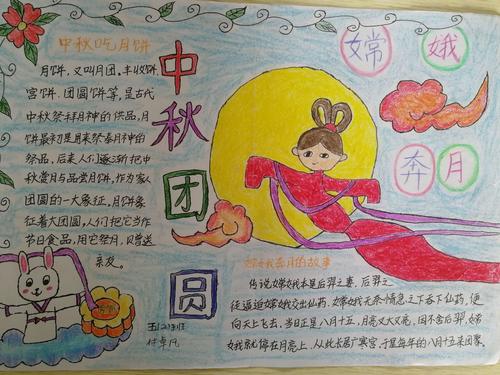 中秋吃月饼
月饼，又叫月团、丰收饼、
宫饼、团圆饼等，是古代
中秋祭拜月神的供品，月
饼最初是用来祭奉月神的
祭品，后来人们逐渐把中
秋赏月与品尝月饼，作为家人
团圆的一大象征，月饼象
征着大团圆，人们把它当作
节日食品，用它祭月、赠送
亲友。
中
秋
团
圆
嫦 娥
奔 月
嫦娥奔月的故事
传说嫦娥本是后羿之妻，后羿之
徒逼迫嫦娥交出仙药，嫦娥无奈情急之下吞下仙药，便
向天上飞去，当日正是八月十五，月亮又大又亮，因不舍后羿，嫦
娥就停在月亮上，从此长居广寒宫，于是每年的八月十五来团聚。
五(2)班